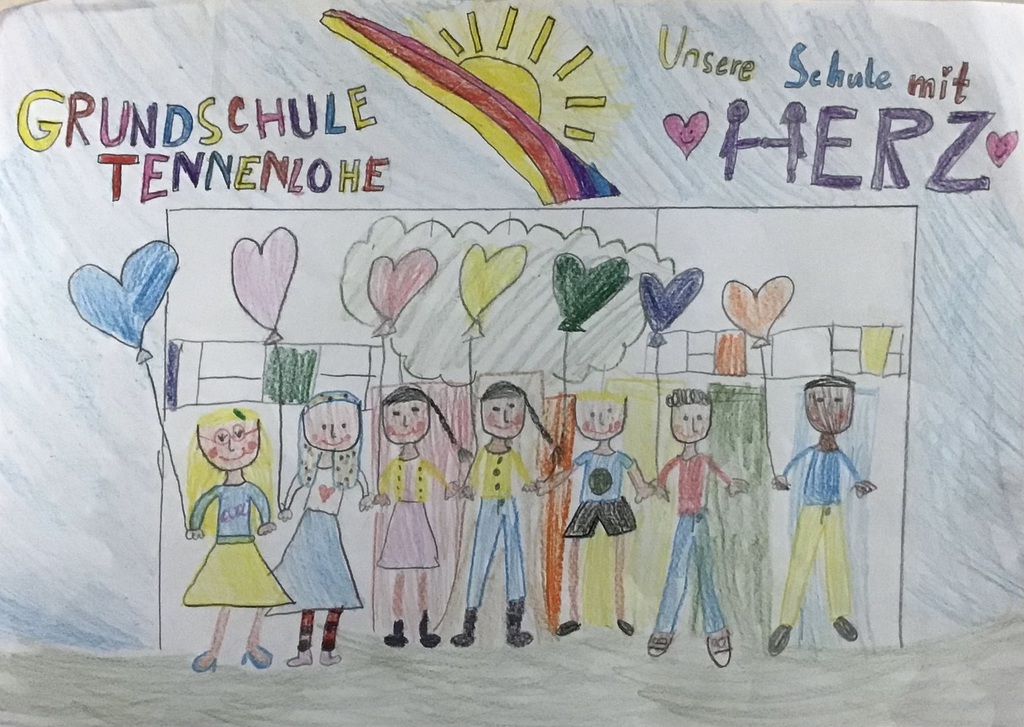 GRUNDSCHULE
TENNENLOHE
Unsere Schule mit
HERZ